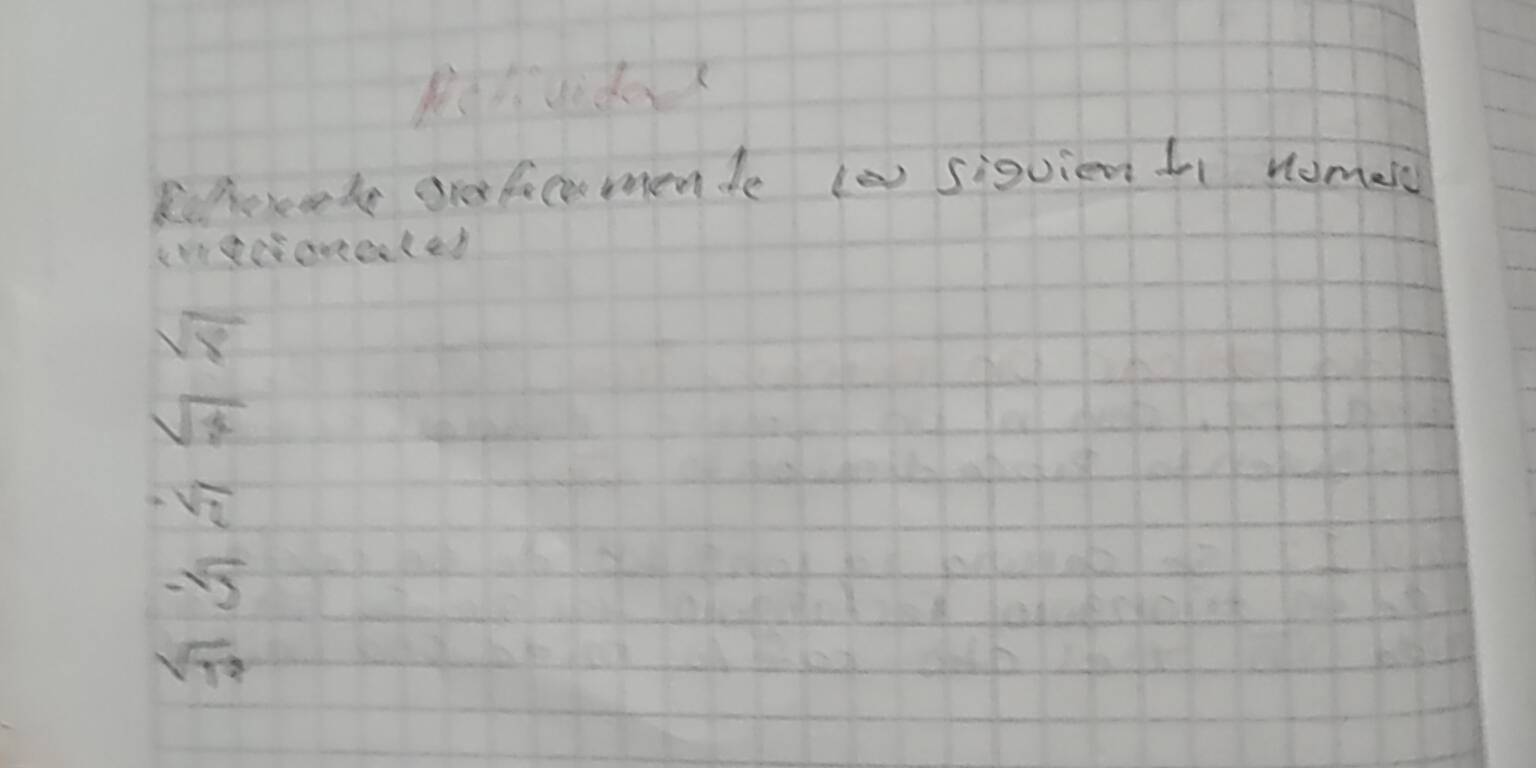 Actividad
Represente graficamente los siguientes numeros
irracionales
√8
√7
-√2
-√3